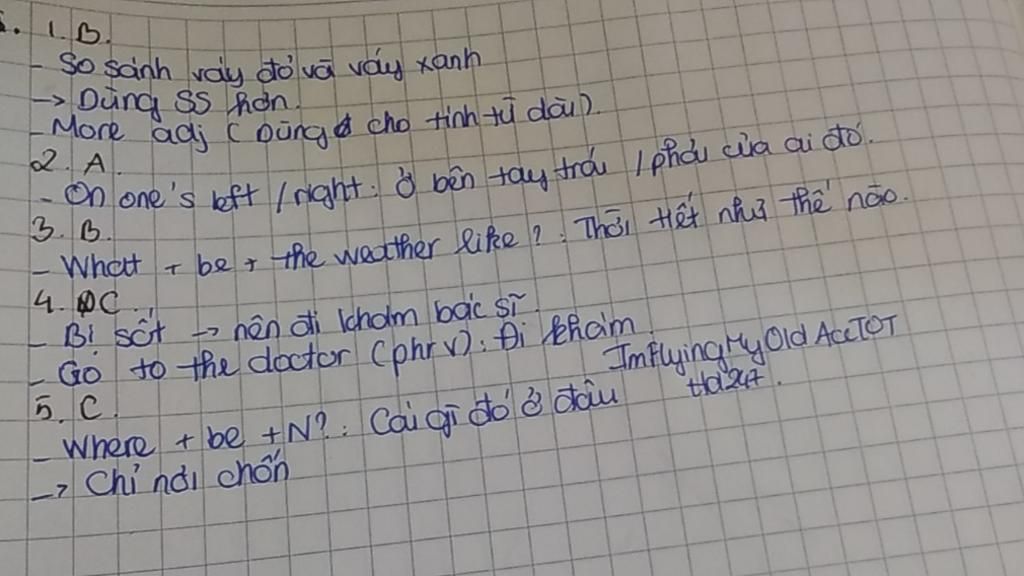 1. B.
- So sánh váy đỏ và váy xanh
→ Dùng SS hơn.
- More adj (Dùng cho tính từ dài).
2. A.
- On one's left / right: ở bên tay trái / phải của ai đó.
3. B.
- What + be + the weather like?: Thời tiết như thế nào.
4. C.
- Bị sốt → nên đi khám bác sĩ
- Go to the doctor (phr v): Đi khám
ImFlyingMyOldAccTOT
Hd247.
5. C.
- Where + be + N?: Cái gì đó ở đâu
→ Chỉ nơi chốn